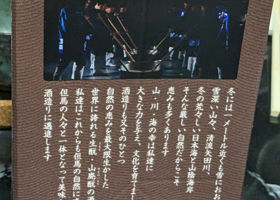 冬には一メートル近くも雪におお
雪深い山々、清流矢田川、
冬の荒々しい日本海と山陰海岸
そんな厳しい自然だからこそ
恵みも多くあります
山・川・海の幸は私達に
大きな力を与え、文化を育て
酒造りも又そのひとつ
自然の恵みを最大限生かした
世界に誇れる生酛・山廃酛の酒
私達はこれからも但馬の自然に
但馬の人々と一体となって美味
酒造りに邁進します